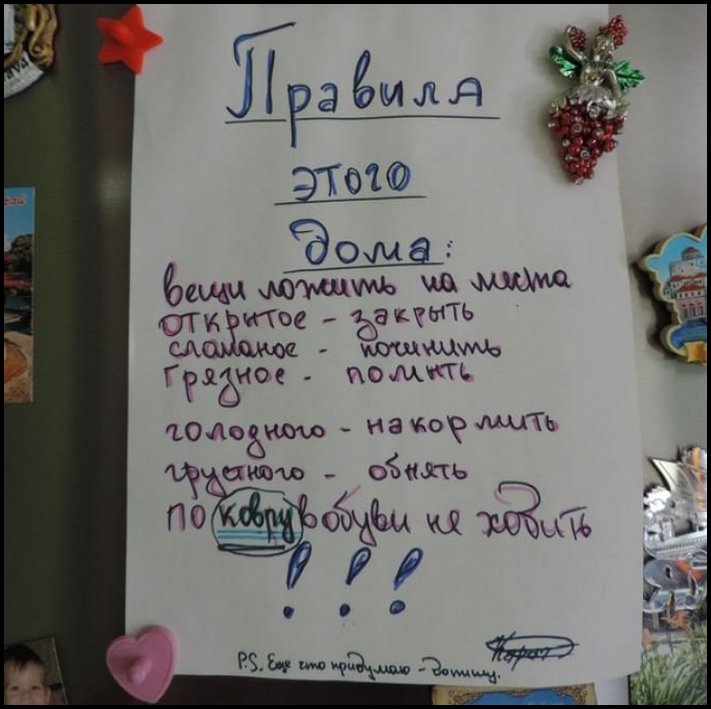 Правила
этого
дома:
вещи ложить на места
открытое - закрыть
сламаное - починить
грязное - помыть
голодного - накормить
грустного - обнять
по ковру в обуви не ходить
!!!
P.S. Еще что придумаю - допишу.